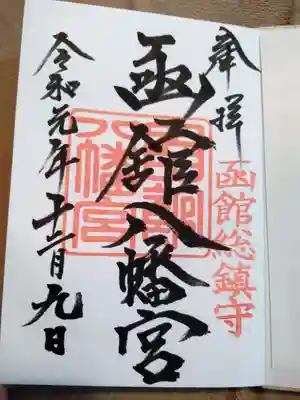 奉拝
函館総鎮守
函館八幡宮
令和元年十二月九日